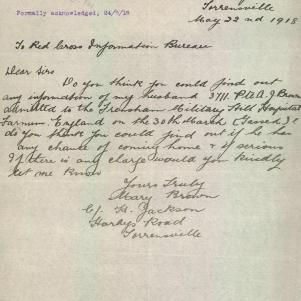 Torrensville
May 22nd 1918
Formally acknowledged, 24/5/18
To Red Cross Information Bureau
Dear Sirs
Do you think you could find out
any information of my husband 3711 Pte A J Brown
admitted to the Frensham Military Hill Hospital
Farnum England on the 30th March (Gassed)
do you think you could find out if he has
any chance of coming home & if serious
If there is any charge would you kindly
let me know
Yours Truly
Mary Brown
C/o H. Jackson
Hardys Road
Torrensville